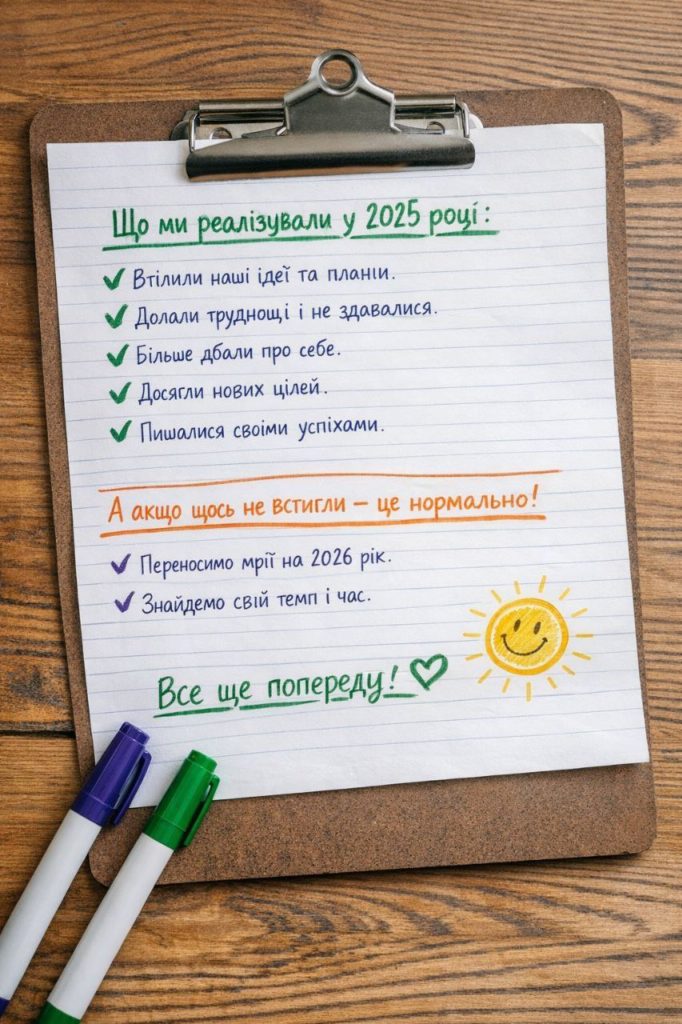 Що ми реалізували у 2025 році:
Втілили наші ідеї та плании.
Долали труднощі і не здавалися.
Більше дбали про себе.
Досягли нових цілей.
Пишалися своїми успіхами.
А акщо щось не встигли – це нормально!
Переносимо мрії на 2026 рік.
Знайдемо свій темп і час.
Все ще попереду!